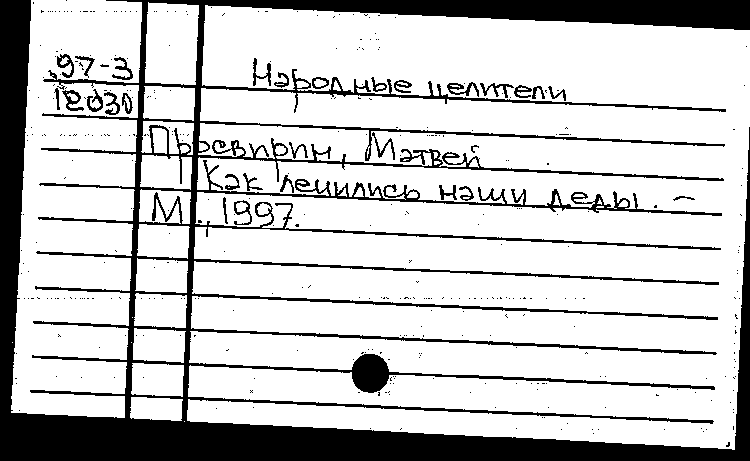 97-3
12030
Народные целители
Просвирин, Матвей
Как лечились наши деды. –
М., 1997.